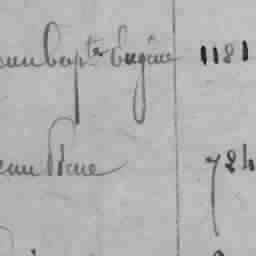 ean Bapte Eugène 1181
ean Pierre 724